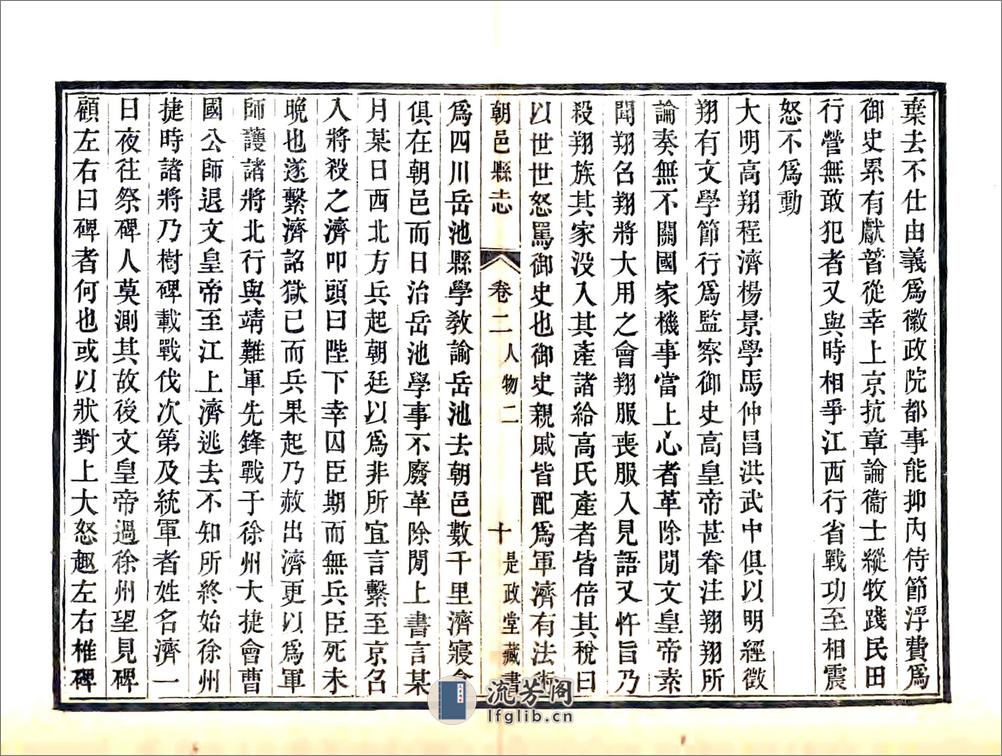 棄去不仕由義爲徽政院都事能抑內侍節浮費爲
御史累有獻替從幸上京抗章論衞士縱牧踐民田
行營無敢犯者又與時相爭江西行省戰功至相震
怒不爲動
大明高翔程濟楊景學馬仲昌洪武中俱以明經徵
翔有文學節行爲監察御史高皇帝甚眷注翔翔所
論奏無不關國家機事當上心者革除閒文皇帝素
聞翔名翔將大用之會翔服喪服入見語又忤旨乃
殺翔族其家没入其產諸給高氏產者皆倍其稅曰
以世世怒罵御史也御史親戚皆配爲軍濟有法術
朝邑縣志
卷二 人物二
十 是政堂藏書
爲四川岳池縣學教諭岳池去朝邑數千里濟寢食
俱在朝邑而日治岳池學事不廢革除閒上書言某
月某日西北方兵起朝廷以爲非所宜言繫至京名
入將殺之濟叩頭曰陛下幸囚臣期而無兵臣死未
晚也遂繫濟詔獄已而兵果起乃赦出濟更以爲軍
師護諸將北行與靖難軍先鋒戰于徐州大捷會曹
國公師退文皇帝至江上濟逃去不知所終始徐州
捷時諸將乃樹碑載戰伐次第及統軍者姓名濟一
日夜往祭碑人莫測其故後文皇帝過徐州望見碑
顧左右曰碑者何也或以狀對上大怒趣左右椎碑
流芳阁
lfglib.cn